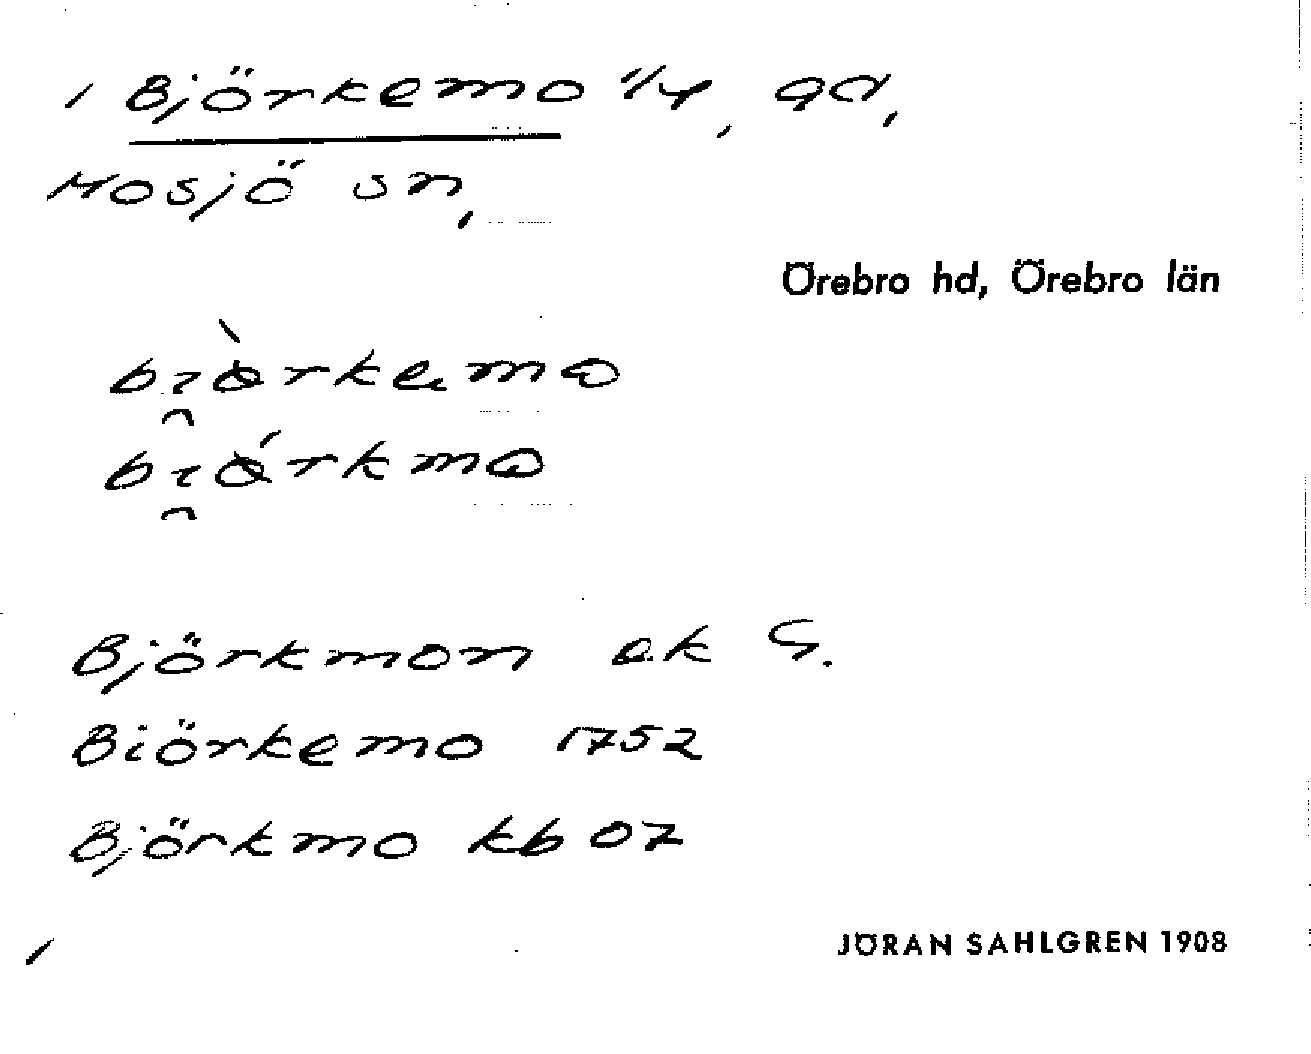 Björkemo 1/4, gd,
Mosjö sn,
Örebro hd, Örebro län
Björkmon ek G.
Biörkemo 1752
Björkmo kb 07
JÖRAN SAHLGREN 1908